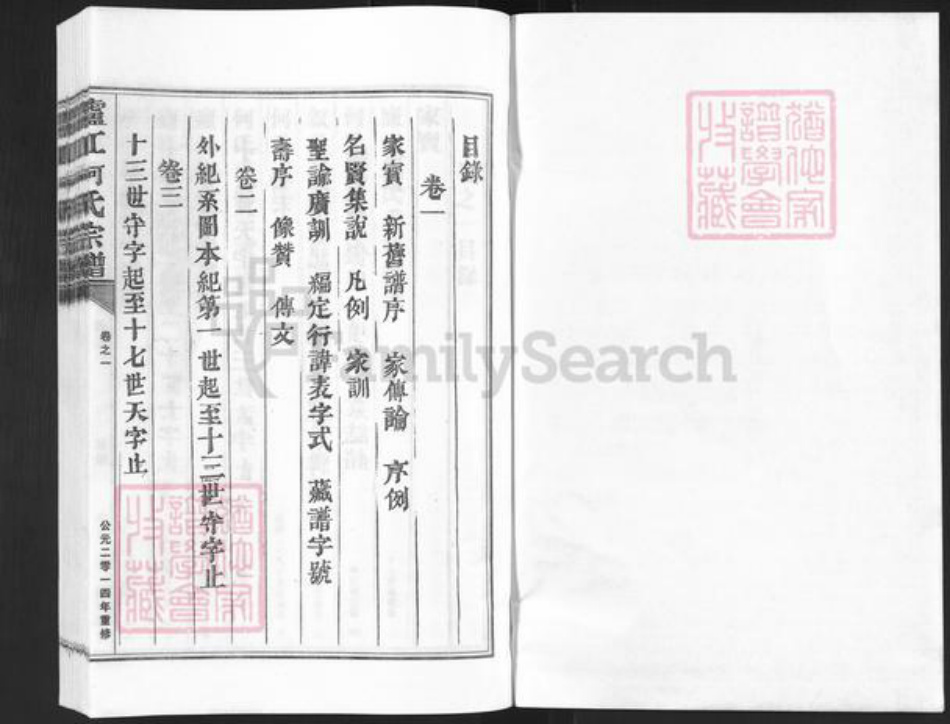 目錄
卷一
家寶 新舊譜序 家傳論 序例
名賢集說 凡例 家訓
聖諭廣訓 編定行諱表字式 藏譜字號
壽序 像贊 傳文
卷二
外紀系圖本紀第一世起至十三世守字止
卷三
十三世守字起至十七世天字止
廬江何氏宗譜
卷之一
公元二零一四年重修
猶他家
譜學會
收藏
猶他家
譜學會
收藏
FamilySearch